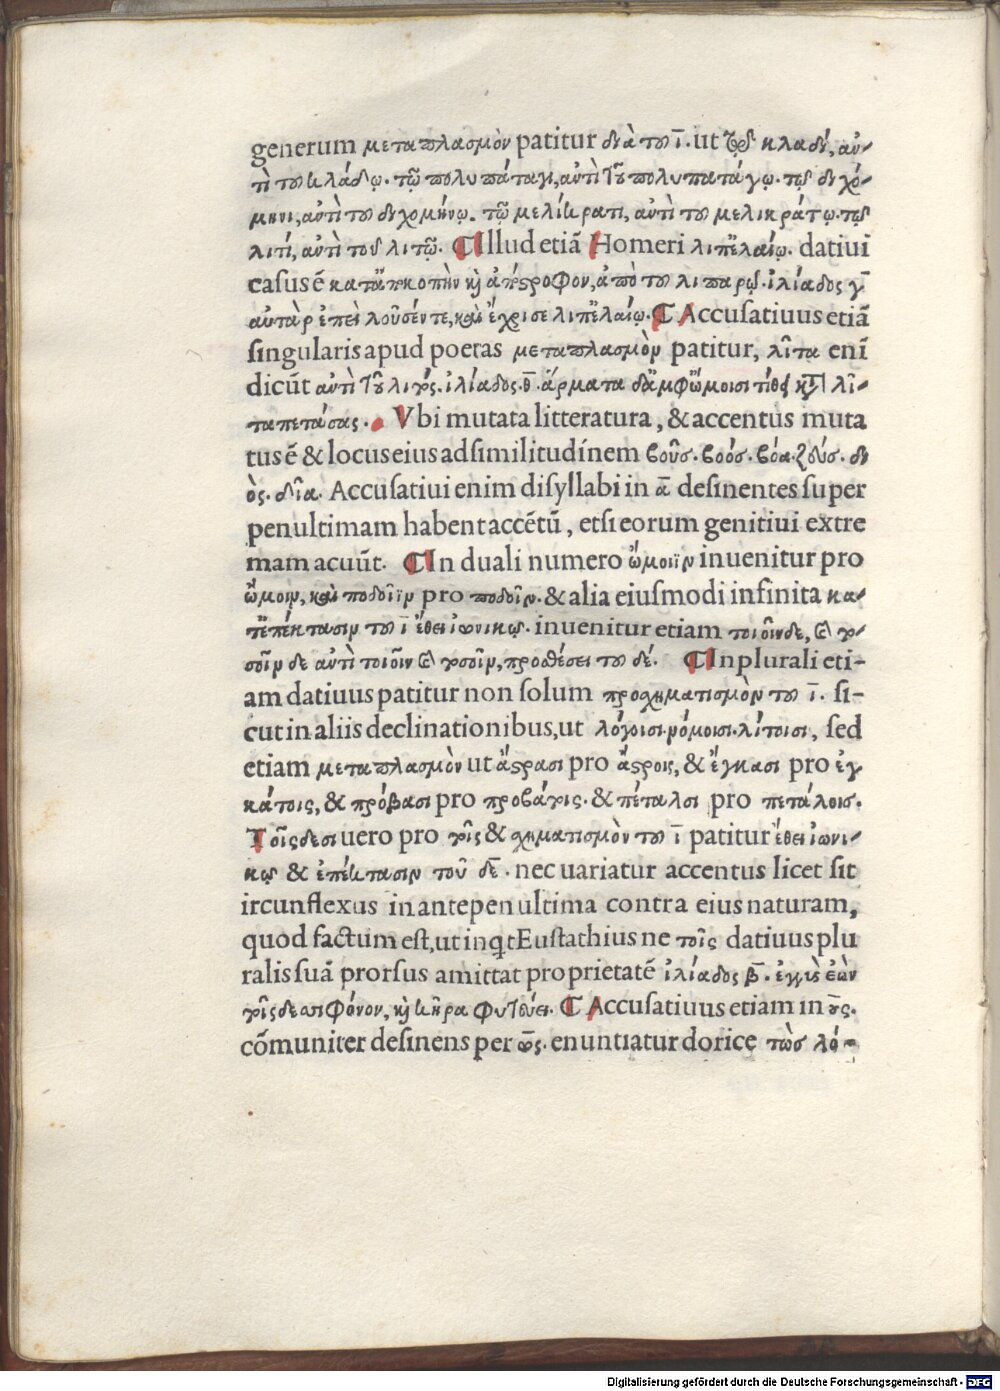 generum μεταπλασμὸν patitur διὰ τοῦ ϊ. ut τῷ κλαδί, ἀν-
τὶ τοῦ κλάδῳ. τῷ πολυπάταγι, ἀντὶ τοῦ πολυπατάγῳ. τῷ διχό-
μηνι, ἀντὶ τοῦ διχομήνῳ. τῷ μελίκρατι, ἀντὶ τοῦ μελικράτῳ. τῷ
λιτί, ἀντὶ τοῦ λιτῷ. ¶ Illud etiā Homeri λιπἔλαίῳ. datiui
casus ē κατὰ συγκοπὴν καὶ ἀπόστροφον, ἀπὸ τοῦ λιπαρῷ. ἰλιάδος γ̄
αὐτὰρ ἐπεὶ λοῦσέν τε, καὶ ἔχρισε λιπἔλαίῳ. ¶ Accusatiuus etiā
singularis apud poetas μεταπλασμὸν patitur, λῖτα enī
dicūt ἀντὶ τοῦ λιτός. ἰλιάδος. θ̄. ἅρματα δἂμφὤμοισι τίθει κατὰ λῖ-
τα πετάσας. Vbi mutata litteratura, & accentus muta
tus ē & locus eius ad similitudínem βοῦς. βοός. βόα. ζεύς. δι
ὸς. δῖα. Accusatiui enim disyllabi in ᾱ desinentes super
penultimam habent accētū, etsi eorum genitiui extre
mam acuūt. ¶ In duali numero ὤμοιϊν inuenitur pro
ὤμοιν, καὶ ποδοῖϊν pro ποδοῖν. & alia eiusmodi infinita κα-
τἐπέκτασιν τοῦ ϊ ἔθει ἰωνικῷ. inuenitur etiam τοιοῖνδε, & τοσ
σοῖν δε ἀντὶ τοιοῖν & τοσοῖν, προσθέσει τοῦ δέ. ¶ In plurali eti-
am datiuus patitur non solum προσχηματισμὸν τοῦ ϊ. si-
cut in aliis declinationibus, ut λόγοισι. νόμοισι. λίτοισι, sed
etiam μεταπλασμὸν ut ἄστρασι pro ἄστροις, & ἔγκασι pro ἐγ
κάτοις, & πρόβασι pro προβάτοις. & πέταλσι pro πετάλοις.
Τοῖσδεσι uero pro τοῖς & σχηματισμὸν τοῦ ϊ patitur ἔθει ἰωνι-
κῷ & ἐπέκτασιν τοῦ δε. nec uariatur accentus licet sit
ircunflexus in antepenultima contra eius naturam,
quod factum est, ut inqt Eustathius ne τοῖς datiuus plu
ralis suā prorsus amittat proprietatē ἰλιάδος β̄. ἐγγὺς ἐὼν
τοῖσδεσι φόνον, καὶ κῆρα φυτεύει. ¶ Accusatiuus etiam in ους.
cōmuniter desinens per ως. enuntiatur dorice τὼσ λό-
Digitalisierung gefördert durch die Deutsche Forschungsgemeinschaft - DFG